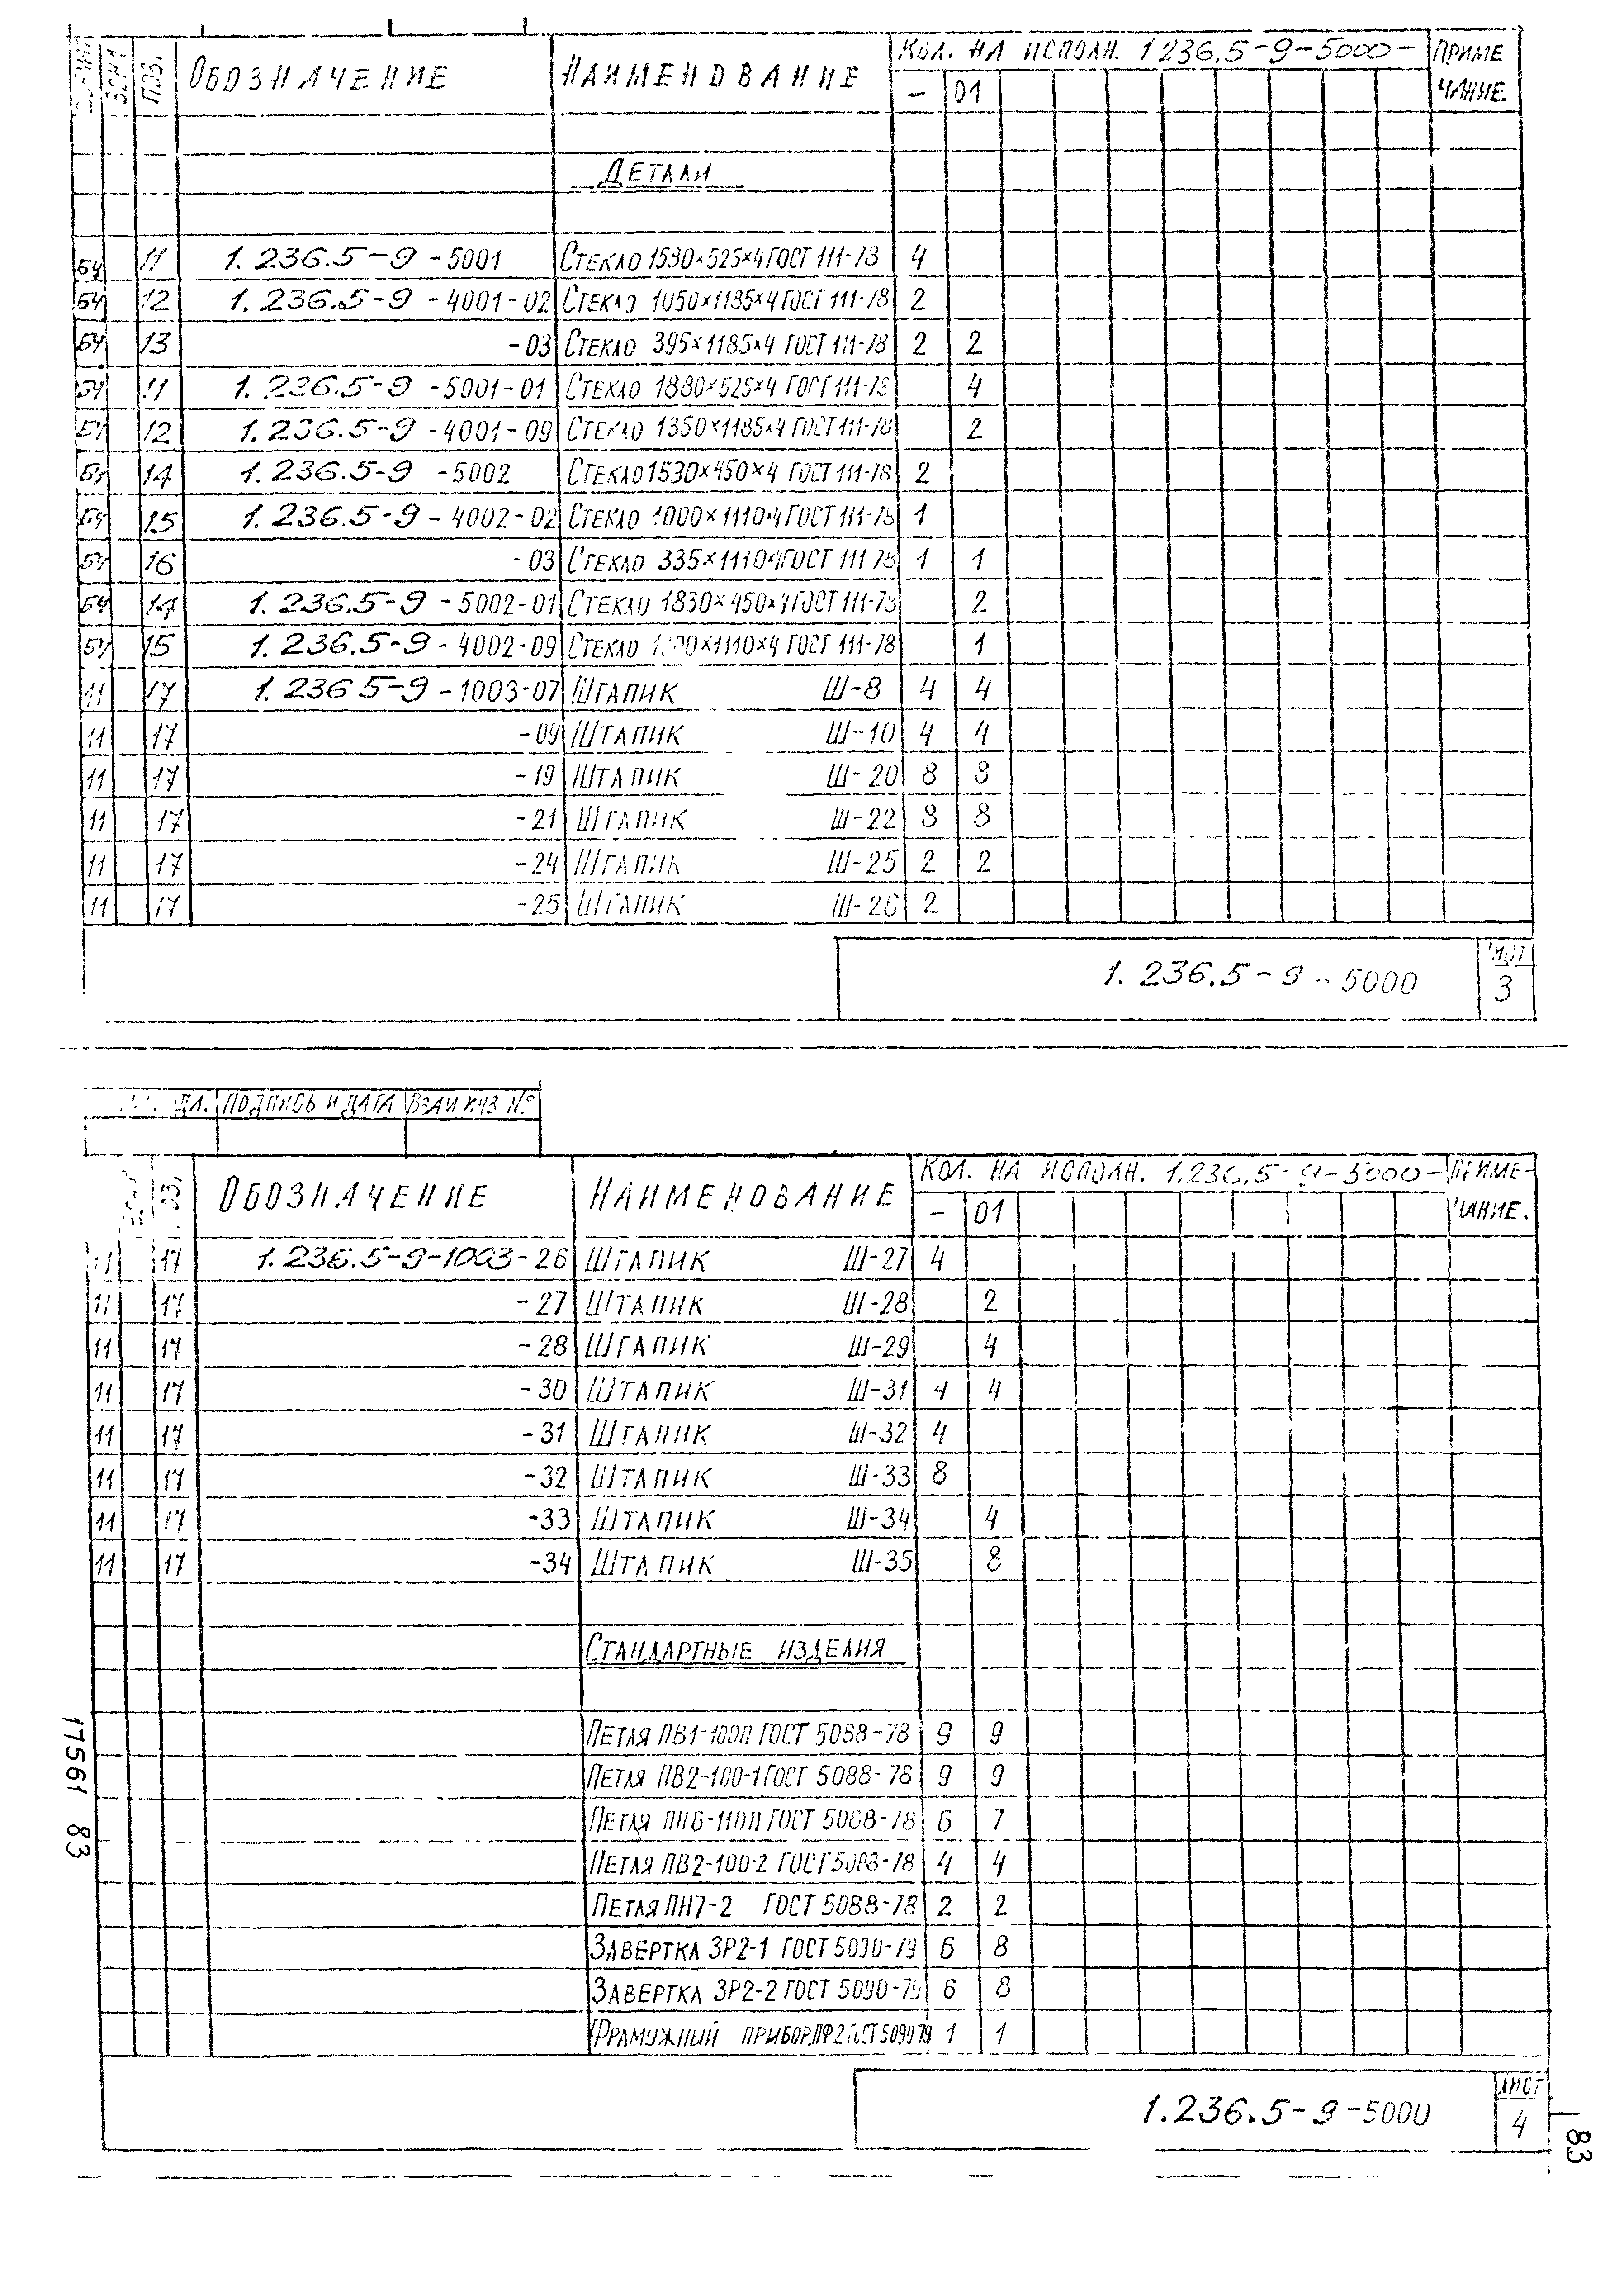 ПОЗ. ОБОЗНАЧЕНИЕ НАИМЕНОВАНИЕ КОЛ. НА ИСПОЛН. 1 236.5-9-5000- ПРИМЕ
- 01 ЧАНИЕ.
ДЕТАЛИ
БЧ 11 1. 236.5-9 -5001 СТЕКЛО 1530×525×4 ГОСТ 111-78 4
БЧ 12 1. 236.5-9 -4001-02 СТЕКЛО 1050×1185×4 ГОСТ 111-78 2
БЧ 13 -03 СТЕКЛО 395×1185×4 ГОСТ 111-78 2 2
БЧ 11 1. 236.5-9 -5001-01 СТЕКЛО 1880×525×4 ГОСТ 111-78 4
БЧ 12 1. 236.5-9 -4001-09 СТЕКЛО 1350×1185×4 ГОСТ 111-78 2
БЧ 14 1. 236.5-9 -5002 СТЕКЛО 1530×450×4 ГОСТ 111-78 2
БЧ 15 1. 236.5-9 -4002-02 СТЕКЛО 1000×1110×4 ГОСТ 111-78 1
БЧ 16 -03 СТЕКЛО 335×1110×4 ГОСТ 111 78 1 1
БЧ 14 1. 236.5-9 -5002-01 СТЕКЛО 1830×450×4 ГОСТ 111-78 2
БЧ 15 1. 236.5-9 -4002-09 СТЕКЛО ×1110×4 ГОСТ 111-78 1
11 17 1. 236 5-9 -1003-07 ШТАПИК Ш-8 4 4
11 17 -09 ШТАПИК Ш-10 4 4
11 17 -19 ШТАПИК Ш-20 8 8
11 17 -21 ШТАПИК Ш-22 8 8
11 17 -24 ШТАПИК Ш-25 2 2
11 17 -25 ШТАПИК Ш-26 2
1. 236.5-9-5000 ЛИСТ
3
ПОДЛ. ПОДПИСЬ И ДАТА ВЗАМ ИНВ №
ПОЗ. ОБОЗНАЧЕНИЕ НАИМЕНОВАНИЕ КОЛ. НА ИСПОЛН. 1.236.5-9-5000- ПРИМЕ-
- 01 ЧАНИЕ.
11 17 1. 236.5-9-1003-26 ШТАПИК Ш-27 4
11 17 -27 ШТАПИК Ш-28 2
11 17 -28 ШТАПИК Ш-29 4
11 17 -30 ШТАПИК Ш-31 4 4
11 17 -31 ШТАПИК Ш-32 4
11 17 -32 ШТАПИК Ш-33 8
11 17 -33 ШТАПИК Ш-34 4
11 17 -34 ШТАПИК Ш-35 8
СТАНДАРТНЫЕ ИЗДЕЛИЯ
ПЕТЛЯ ПВ1-100П ГОСТ 5088-78 9 9
ПЕТЛЯ ПВ2-100-1 ГОСТ 5088-78 9 9
ПЕТЛЯ ПН6-110П ГОСТ 5088-78 6 7
ПЕТЛЯ ПВ2-100-2 ГОСТ 5088-78 4 4
ПЕТЛЯ ПН7-2 ГОСТ 5088-78 2 2
ЗАВЕРТКА ЗР2-1 ГОСТ 5090-79 6 8
ЗАВЕРТКА ЗР2-2 ГОСТ 5090-79 6 8
ФРАМУЖНЫЙ ПРИБОР ПФ2 ГОСТ 5090 79 1 1
1.236.5-9-5000 ЛИСТ
4
17561 83
83